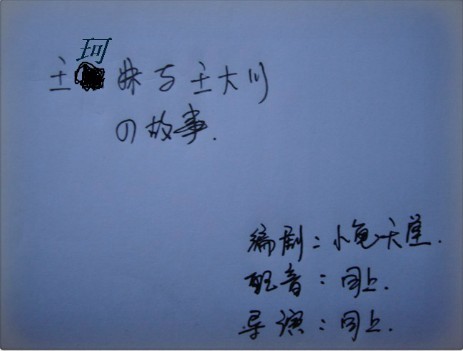 王珂妹与王大川
の故事.
编剧：小兔天堂.
配音：同上.
导演：同上.